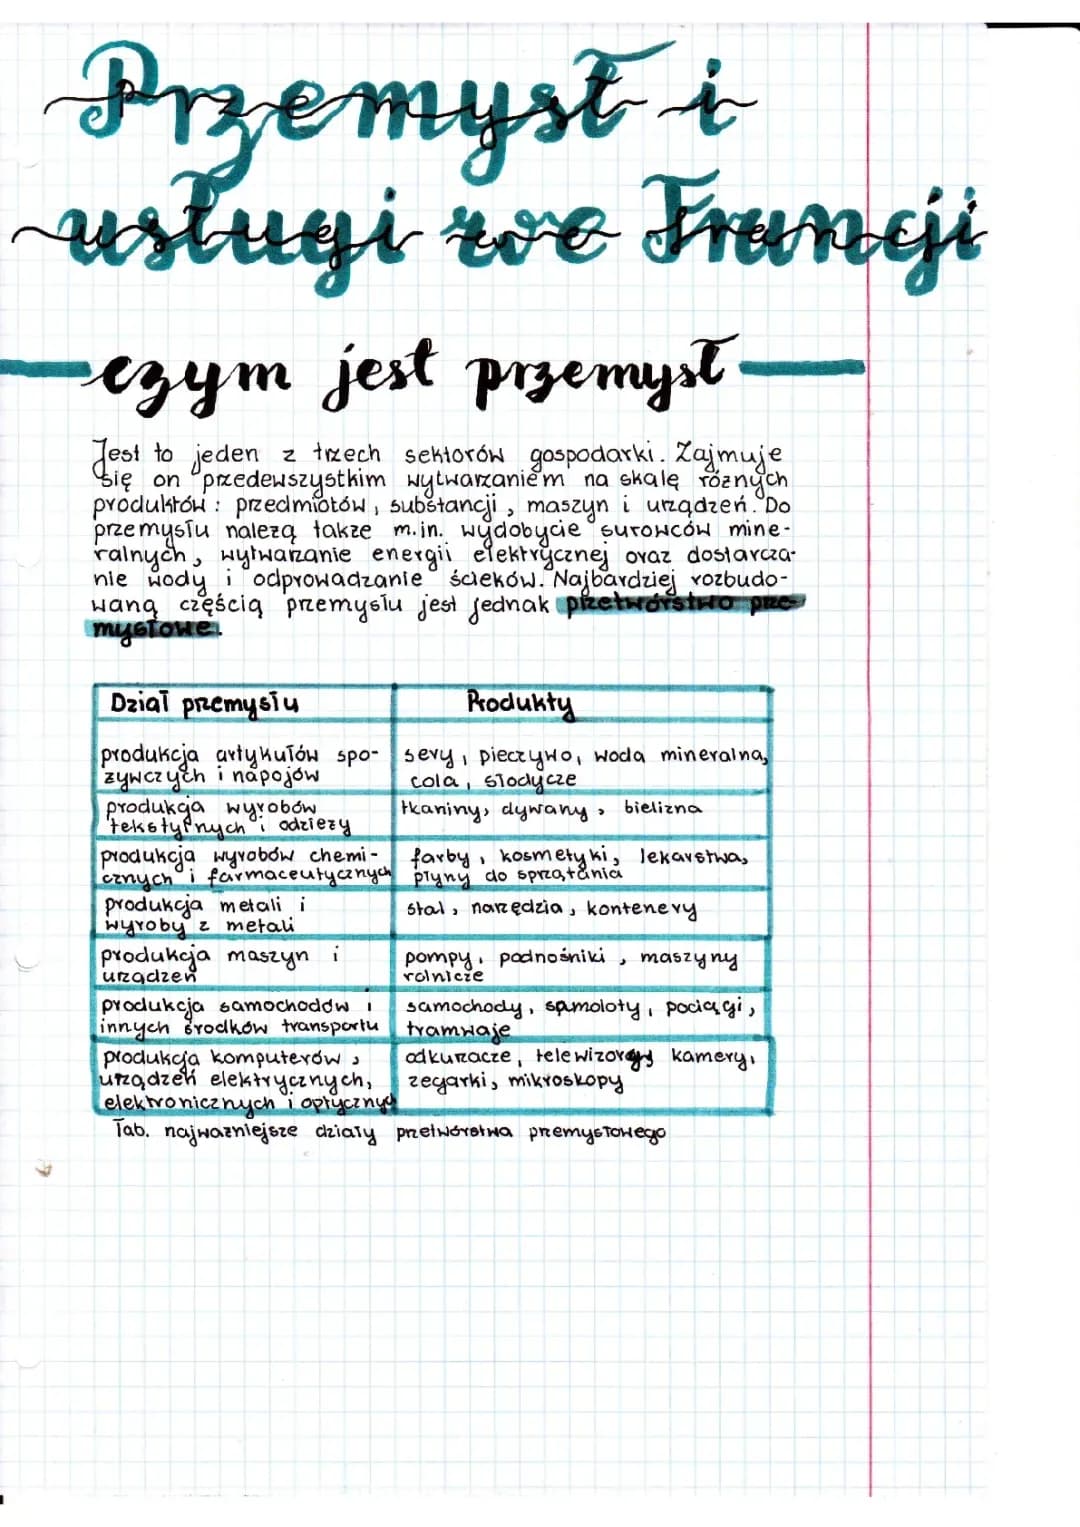 Przemysł i
usługi we Francji
czym jest przemysł
Jest to jeden z trzech sektorów gospodarki. Zajmuje
się on przedewszystkim wytwarzaniem na skalę różnych
produktów: przedmiotów, substancji, maszyn i urządzeń. Do
przemysłu należą także m.in. wydobycie surowców mine-
ralnych, wytwarzanie energii elektrycznej oraz dostarcza-
nie wody i odprowadzanie ścieków. Najbardziej rozbudo-
waną częścią przemysłu jest jednak przetwórstwo prze-
mysłowe.
Dział przemysłu Produkty
produkcja artykułów spo- sery, pieczywo, woda mineralna,
żywczych i napojów cola, słodycze
produkcja wyrobów tkaniny, dywany, bielizna
tekstylnych i odzieży
produkcja wyrobów chemi- farby, kosmetyki, lekarstwa,
cznych i farmaceutycznych płyny do sprzątania
produkcja metali i stal, narzędzia, kontenery
wyroby z metali
produkcja maszyn i pompy, podnośniki, maszyny
urządzeń rolnicze
produkcja samochodów i samochody, samoloty, pociągi,
innych środków transportu tramwaje
produkcja komputerów, odkurzacze, telewizory kamery,
urządzeń elektrycznych, zegarki, mikroskopy
elektronicznych i optycznych
Tab. najważniejsze działy przetwórstwa przemysłowego